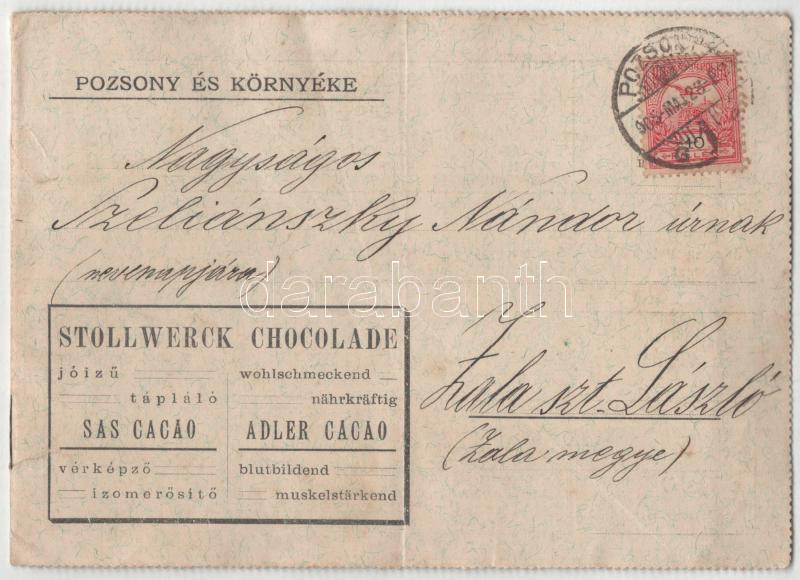 POZSONY ÉS KÖRNYÉKE
POZSONY
10
Nagyságos
Szeliánszky Nándor úrnak
(nevenapjára)
darabanth
STOLLWERCK CHOCOLADE
jóizű
tápláló
SAS CACAO
vérképző
izomerősitő
wohlschmeckend
nährkräftig
ADLER CACAO
blutbildend
muskelstärkend
Zala szt. László
(Zala megye)